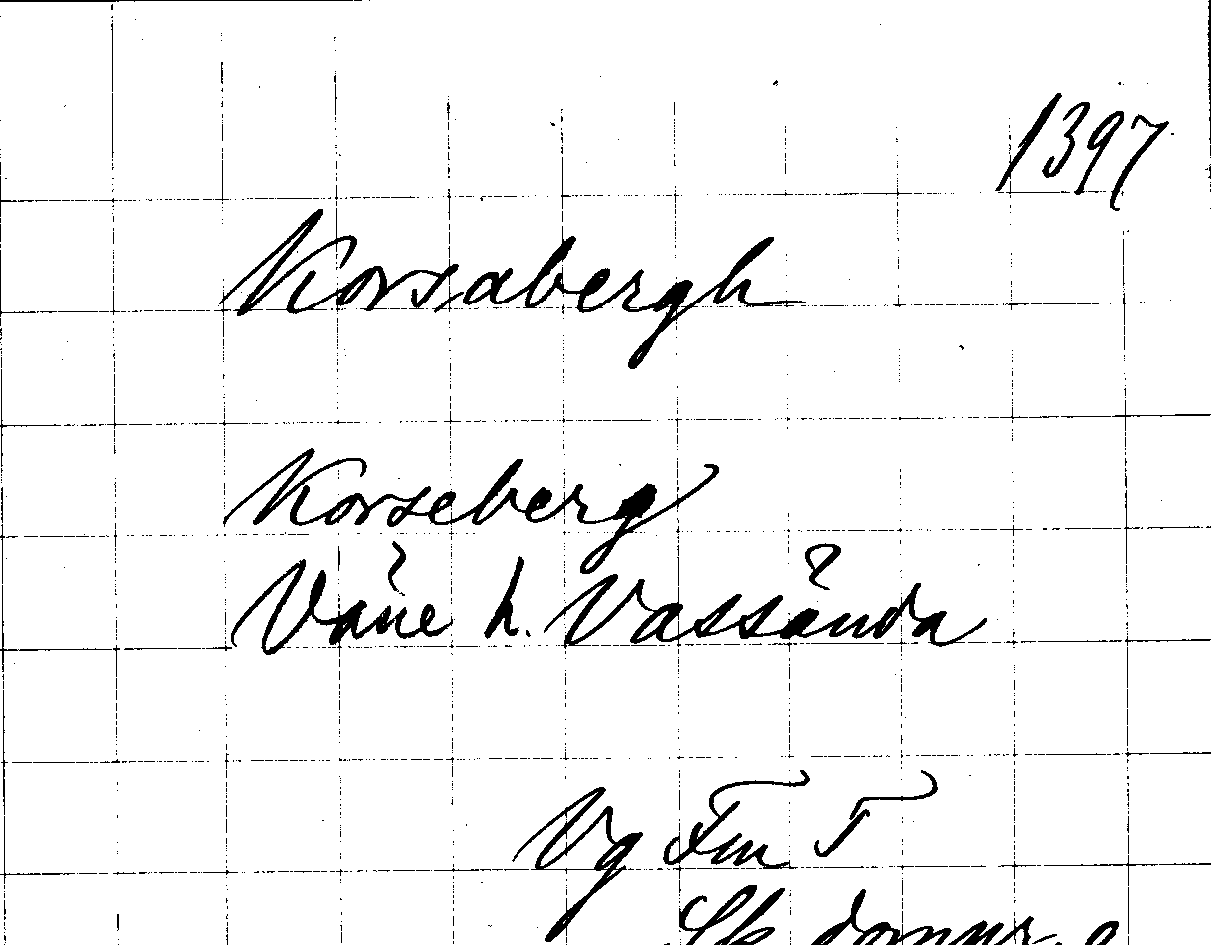 1397
Korsabergh
Korseberg
Väne h. Vassända
Vg Fm T
Sk